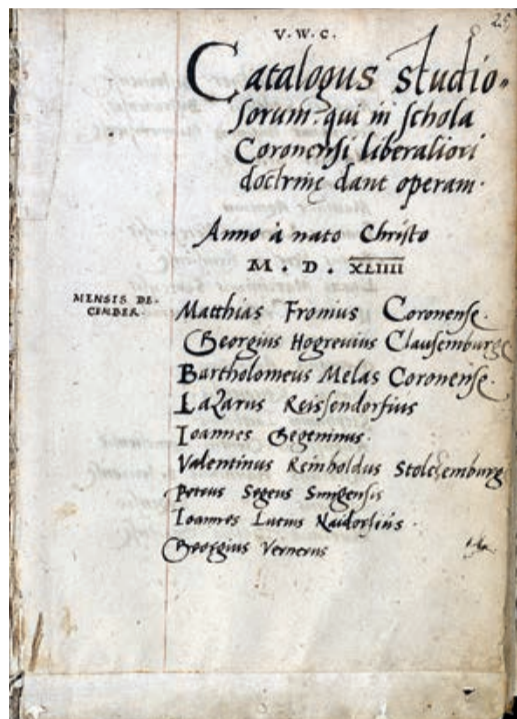 25
V. W. C.
Catalogus studio-
sorum: qui in schola
Coronensi liberaliori
doctrinę dant operam.
Anno à nato Christo
M. D. XLIIII
MENSIS DE-
CEMBER
Matthias Fronius Coronenſe.
Georgius Hogrevius Clausemburge
Bartholomeus Melas Coronenſe.
Lazarus Reissendorfius
Ioannes Gegeminus.
Valentinus Reinholdus Stolczemburg
Petrus Segeus
Ioannes Lutus
Georgius Vernerus